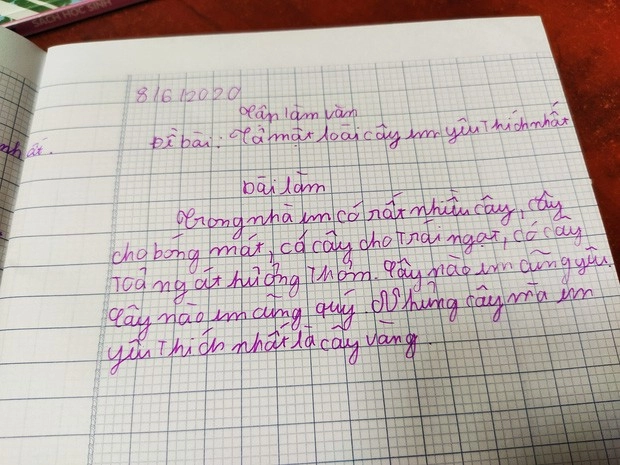 SÁCH HỌC SINH
8/6/2020
Tập làm văn
Đề bài: Tả một loài cây em yêu thích nhất
bài làm
Trong nhà em có rất nhiều cây, cây
cho bóng mát, có cây cho trái ngọt, có cây
toả ngát hưởng thơm. Cây nào em cũng yêu.
Cây nào em cũng quý. Nhưng cây mà em
yêu thích nhất là cây vàng.
nhất.